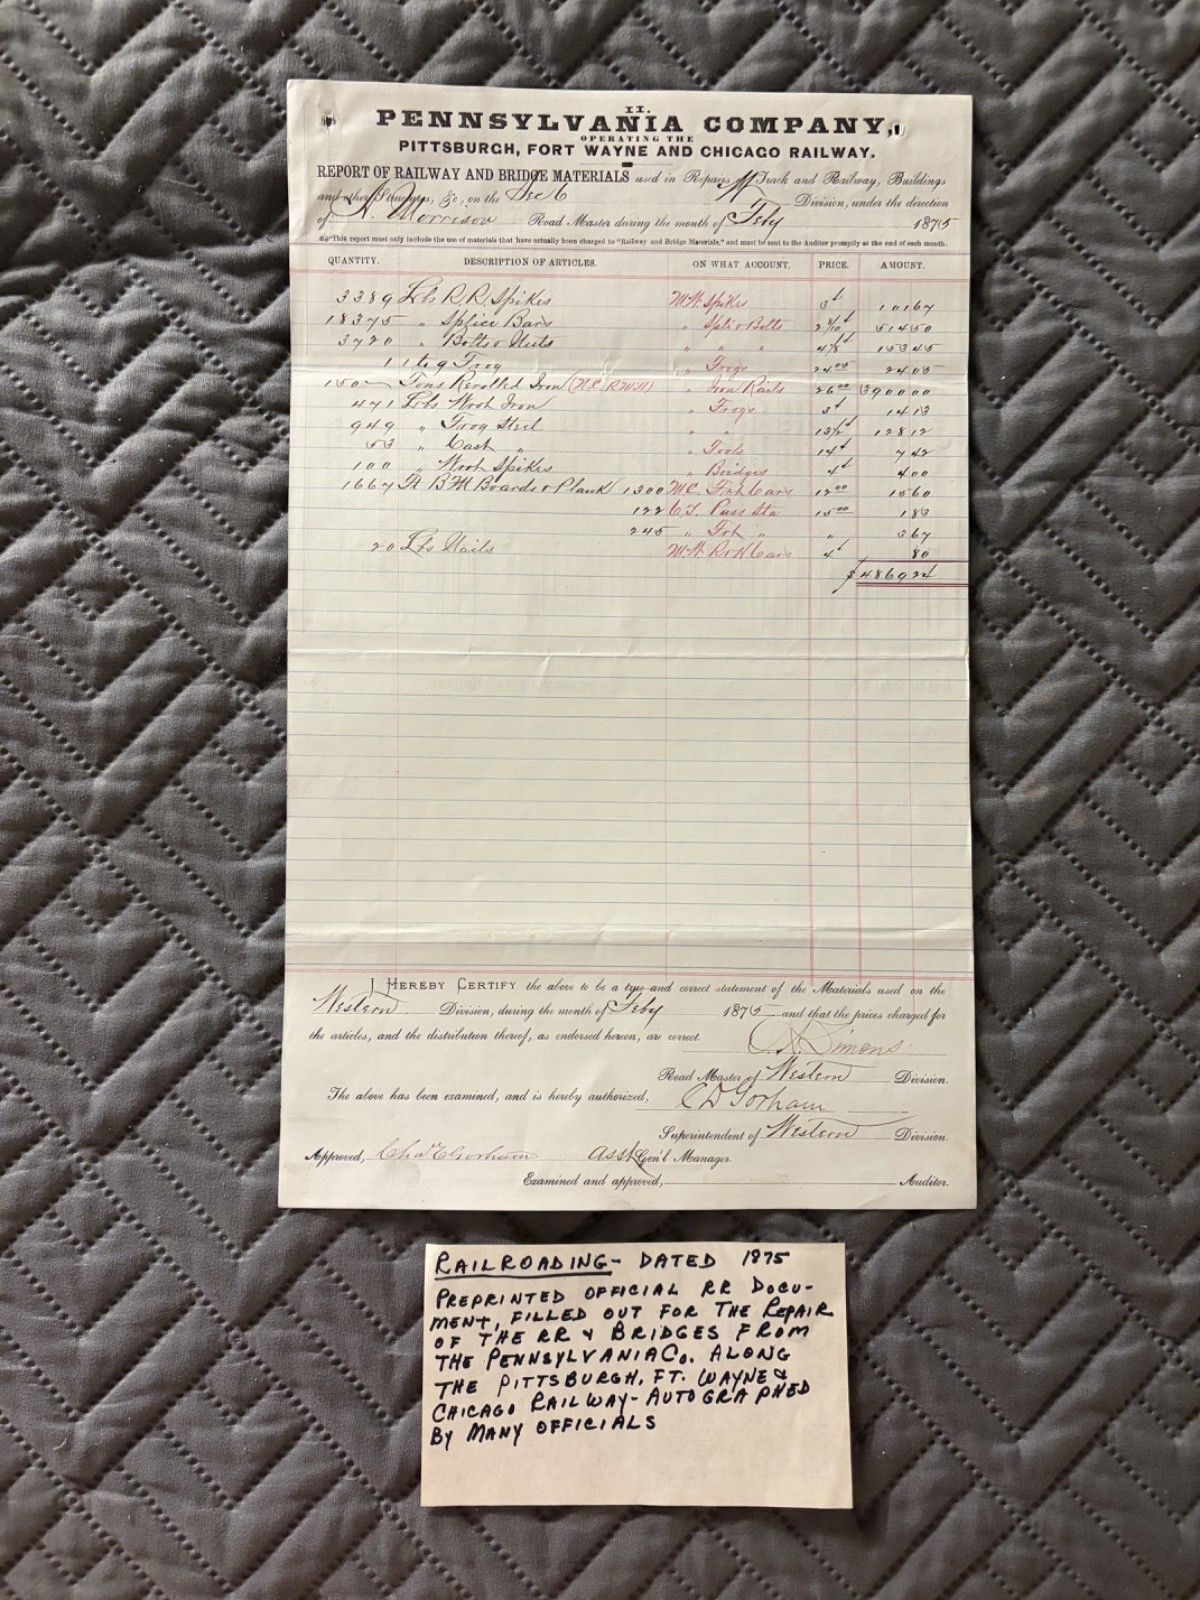 II.
PENNSYLVANIA COMPANY,
OPERATING THE
PITTSBURGH, FORT WAYNE AND CHICAGO RAILWAY.
REPORT OF RAILWAY AND BRIDGE MATERIALS used in Repairs of Track and Railway, Buildings
and other Structures, &c., on the Sec 6 W Division, under the direction
of A. Morrison Road Master during the month of Feby 1875
This report must only include the use of materials that have actually been charged to "Railway and Bridge Materials," and must be sent to the Auditor promptly at the end of each month.
QUANTITY. DESCRIPTION OF ARTICLES. ON WHAT ACCOUNT. PRICE. AMOUNT.
3389 Lbs R.R. Spikes M.W. Spikes 3¢ 101 67
18375 " Splice Bars " Spl & Bolts 2 8/10¢ 514 50
3720 " Bolts & Nuts " " " 4 1/8¢ 153 45
1 Frog " Frogs 24 05 24 05
150 Tons Rerolled Iron " Iron Rails 26 00 3900 00
471 Lbs Wroh Iron " Frogs 3¢ 14 13
949 " Frog Steel " " 13 1/2¢ 128 12
53 " Cast " " Tools 14¢ 7 42
100 " Wroh Spikes " Bridges 4¢ 4 00
1667 Ft B.M. Boards & Plank 1300 M.C. Frt Cars 12 00 15 60
122 C.T. Pass Sta 15 00 1 83
245 " Frt " " 3 67
20 Lbs Nails 4¢ 80
$4869 24
I HEREBY CERTIFY the above to be a true and correct statement of the Materials used on the
Western Division, during the month of Feby 1875 and that the prices charged for
the articles, and the distribution thereof, as endorsed hereon, are correct.
C. A. Simons
Road Master of Western Division.
The above has been examined, and is hereby authorized, C D Gorham
Superintendent of Western Division.
Approved, Chas E Gorham Asst Gen'l Manager.
Examined and approved, Auditor.
RAILROADING- DATED 1875
PREPRINTED OFFICIAL RR DOCU-
MENT, FILLED OUT FOR THE REPAIR
OF THE RR & BRIDGES FROM
THE PENNSYLVANIA CO. ALONG
THE PITTSBURGH, FT. WAYNE &
CHICAGO RAILWAY- AUTOGRAPHED
BY MANY OFFICIALS